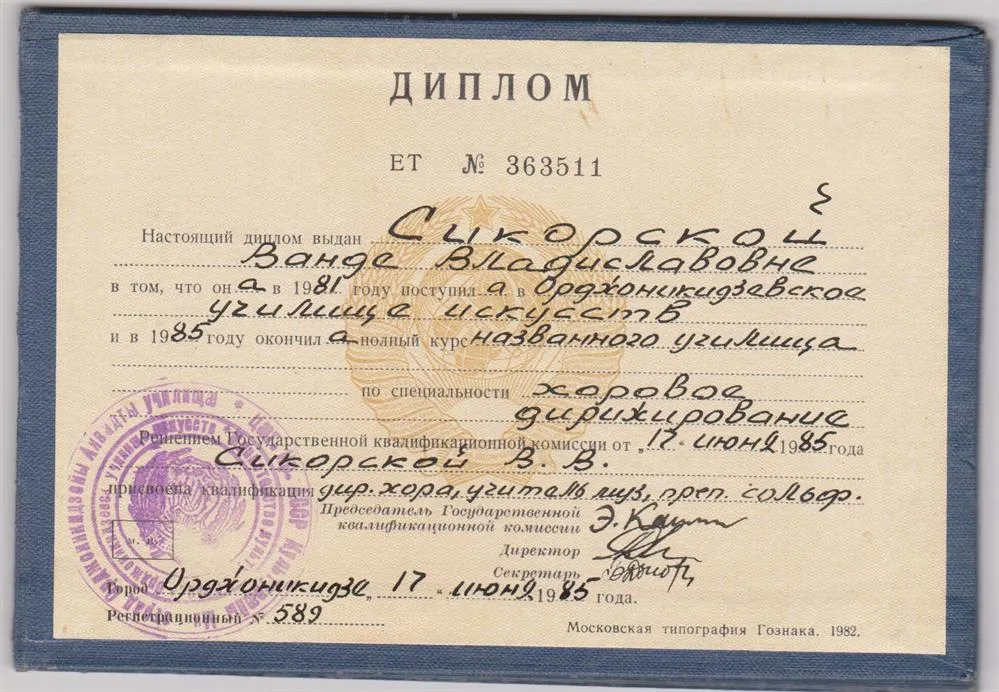 ДИПЛОМ
ЕТ № 363511
Настоящий диплом выдан Сикорской
Ванде Владиславовне
в том, что он а в 1981 году поступил а в Орджоникидзевское
училище искусств
и в 1985 году окончил а полный курс названного училища
по специальности хоровое
дирижирование
Решением Государственной квалификационной комиссии от „17“ июня 1985 года
Сикорской В. В.
присвоена квалификация дир. хора, учитель муз, преп. сольф.
Председатель Государственной
квалификационной комиссии
Директор
Секретарь
М. П.
Город Орджоникидзе „17“ июня 1985 года.
Регистрационный № 589
Московская типография Гознака. 1982.